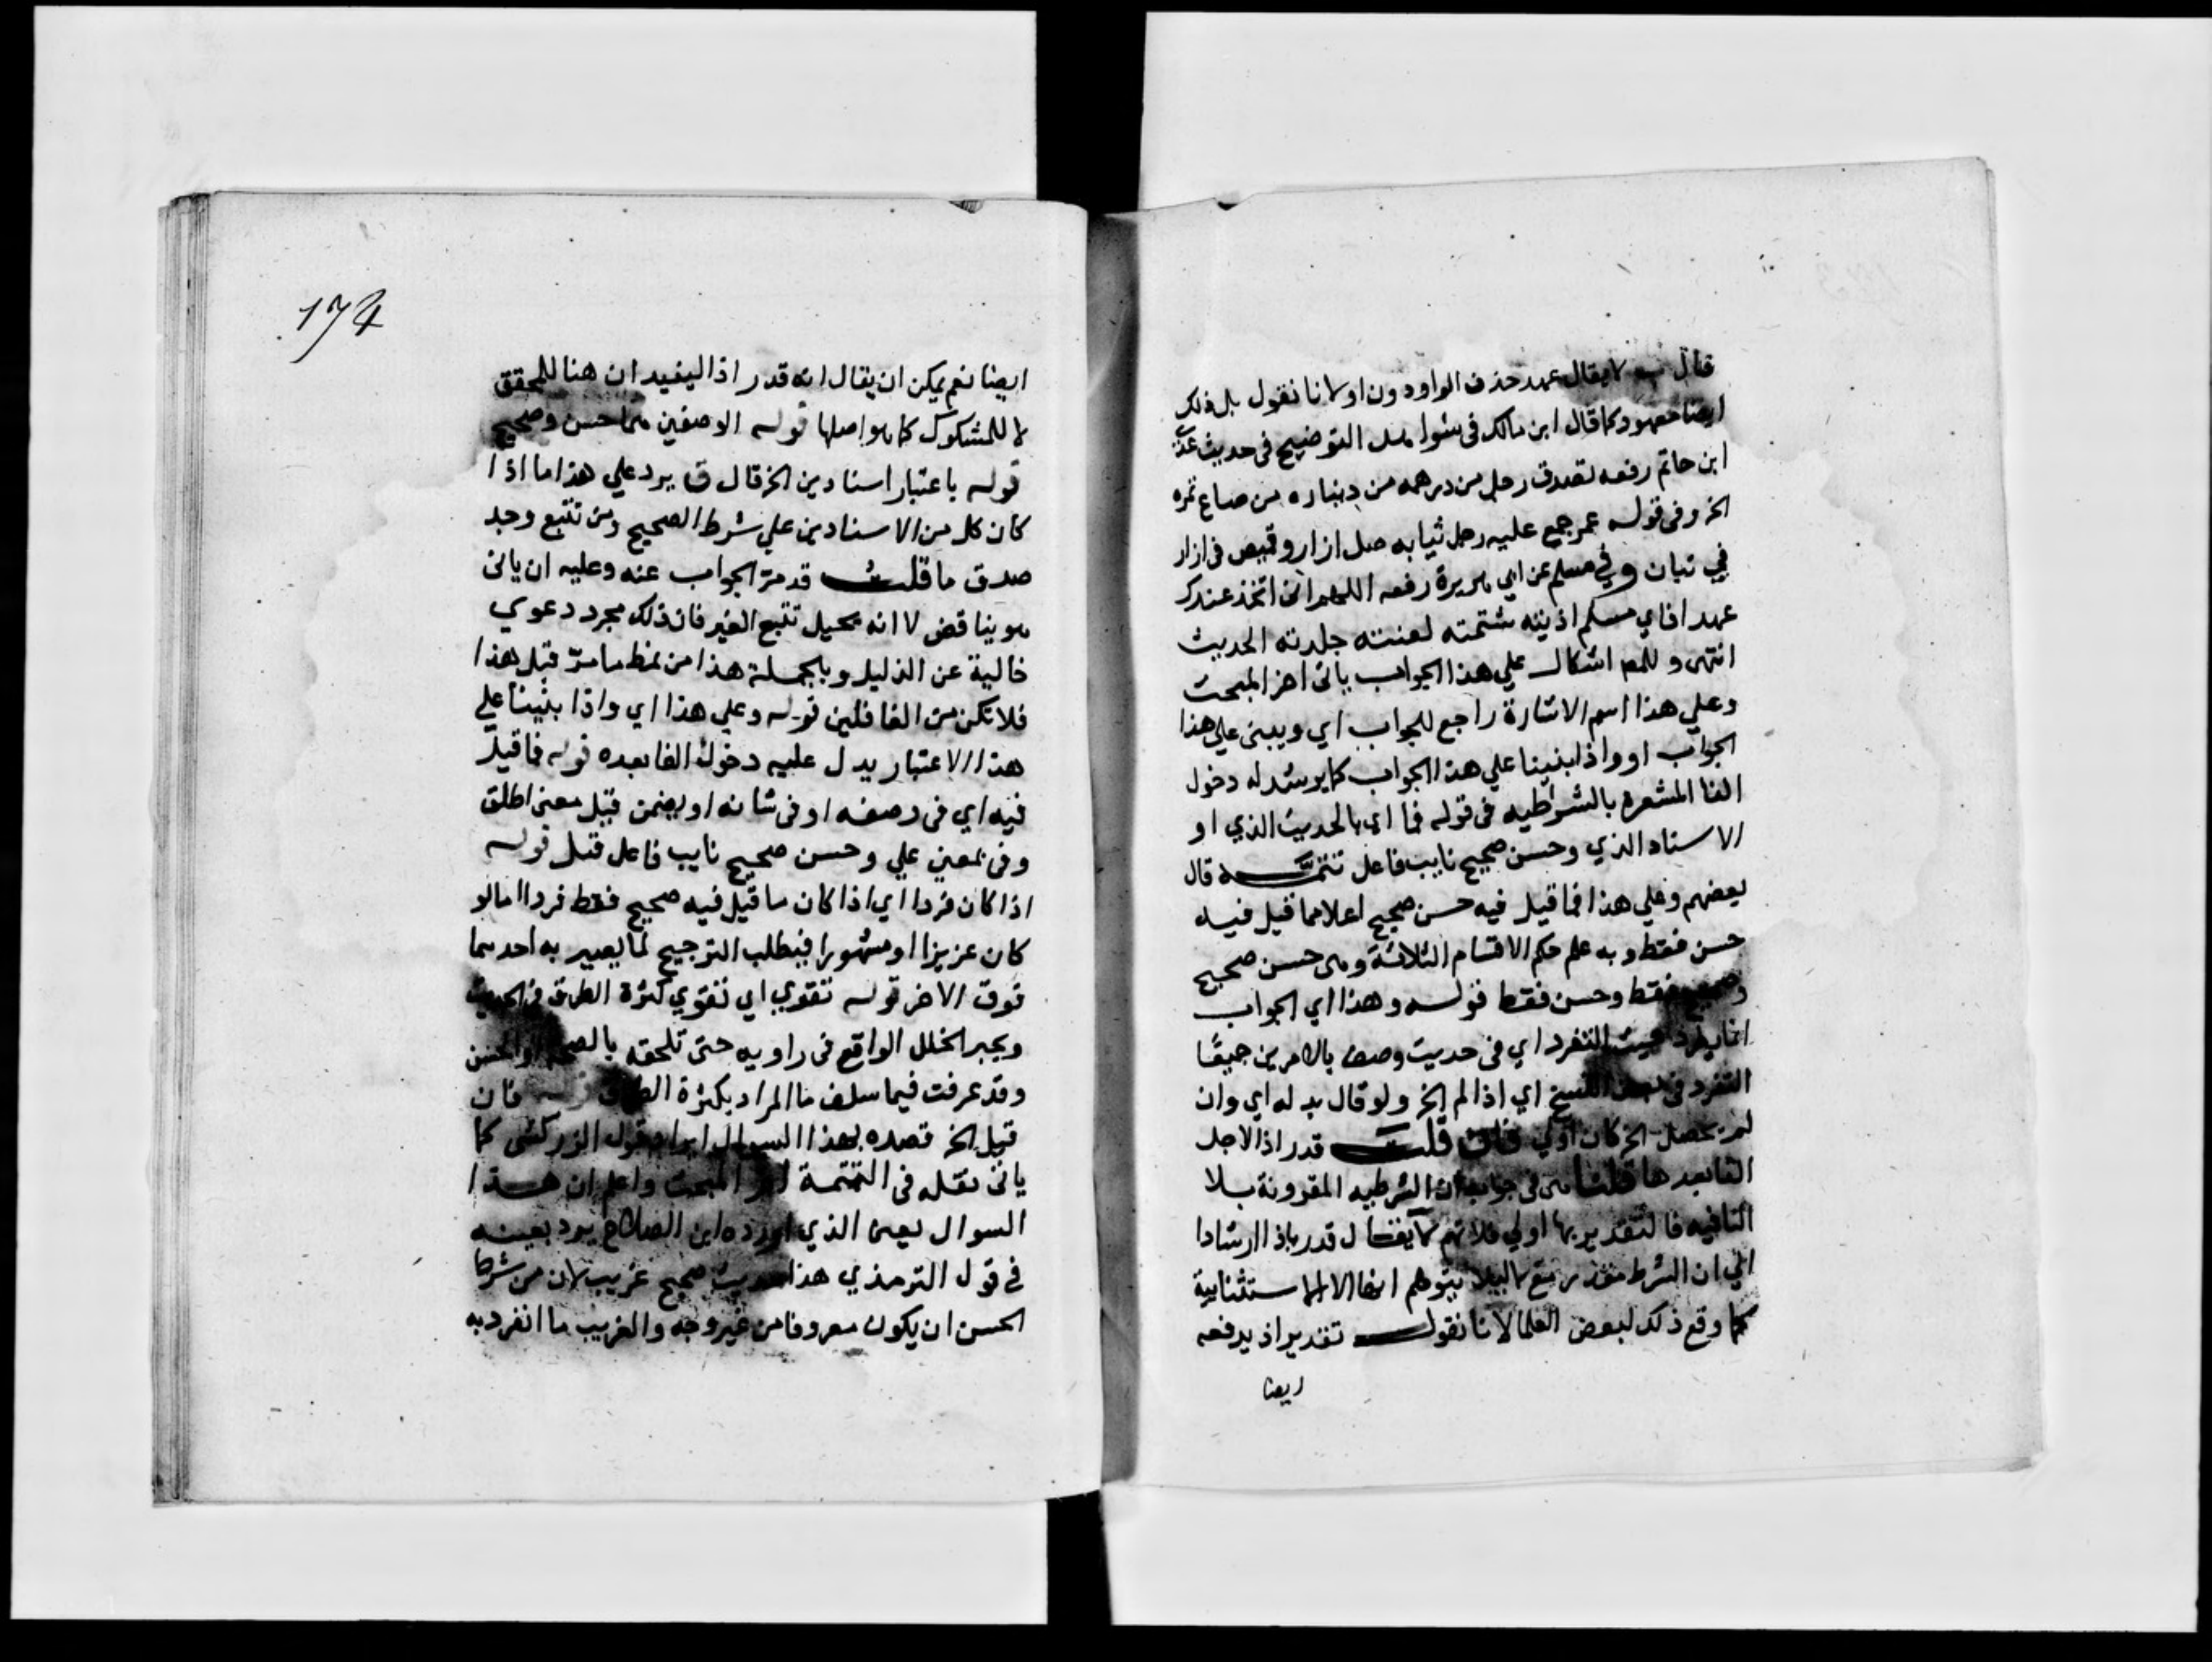 قال لا يقال عهد حذف الواو دون او لانا نقول بل ذلك
ايضا معهود كما قال ابن مالك في التوضيح في حديث عدي
ابن حاتم رفعه تصدق رجل من درهمه من ديناره من صاع تمره
الخ وفي قوله عمر جمع عليه رجل ثيابه صل ازار وقميص في ازار
في تبان وفي مسلم عن ابي هريرة رفعه اللهم اني اتخذ عندك
عهدا فاي مسلم اذيته شتمته لعنته جلدته الحديث
انتهى وللم اشكال علي هذا الجواب ياتى اخر المبحث
وعلي هذا اسم الاشارة راجع للجواب اي ويبنى علي هذا
الجواب او واذا بنينا علي هذا الجواب كما يرشد له دخول
الفا المشعرة بالشرطيه فى قوله فما اي بالحديث الذي او
الاسناد الذي وحسن صحيح نايب فاعل تتمه قال
بعضهم وعلي هذا فما قيل فيه حسن صحيح اعلا مما قيل فيه
حسن فقط وبه علم حكم الاقسام الثلاثة وهى حسن صحيح
وصحيح فقط وحسن فقط قوله وهذا اي الجواب
انما يرد حيث التفرد اي فى حديث وصف بالامرين جميعًا
التفرد فى بعض النسخ اي اذا لم الخ ولو قال بدله اي وان
لم يحصل الخ كان اولي فان قلت قدر اذا لاجل
الفا بعدها قلنا هى فى جواب ان الشرطيه المقرونة بلا
النافيه فالتقدير بها اولي فلا تهم لا يقال قدر باذا ارشادا
الي ان الشرط مقدر مع لا ليلا يتوهم انها الا الاستثنايية
كما وقع ذلك لبعض العلما لانا نقول تقدير اذ يدفعه
ايضا
174
ايضا نعم يمكن ان يقال انه قدر اذا ليفيد ان هنا للمحقق
لا للمشكوك كما هو اصلها قوله الوصفين هما حسن وصحيح
قوله باعتبار اسنادين الخ قال ق يرد علي هذا ما اذا
كان كل من الاسنادين علي شرط الصحيح ومن تتبع وجد
صدق ما قلت قد مر الجواب عنه وعليه ان ياتى
هو بنا قض لا انه يحيل تتبع الغير فان ذلك مجرد دعوي
خالية عن الدليل وبالجملة هذا من نمط ما مر قبل هذا
فلا تكن من الغافلين قوله وعلي هذا اي واذا بنينا علي
هذا الاعتبار يدل عليه دخول الفا بعده قوله فما قيل
فيه اي فى وصفه او فى شانه او يضمن قيل معنى اطلق
وفى بمعنى علي وحسن صحيح نايب فاعل قيل قوله
اذا كان فردا اي اذا كان ما قيل فيه صحيح فقط فردا اما لو
كان عزيزا او مشهورا فيطلب الترجيح لما يصير به احدهما
فوق الاخر قوله تقوي اي تقوي كثرة الطرق في الحديث
ويجبر الخلل الواقع فى راويه حتى تلحقه بالصحيح او الحسن
وقد عرفت فيما سلف ما المراد بكثرة الطرق قوله فان
قيل الخ قصده بهذا السوال ايراد قول الزركشى كما
ياتى نقله فى التتمة اخر المبحث واعلم ان هذا
السوال بعينه الذي اورده ابن الصلاح يرد بعينه
في قول الترمذي هذا حديث صحيح غريب لان من شرط
الحسن ان يكون معروفا من غير وجه والغريب ما انفرد به